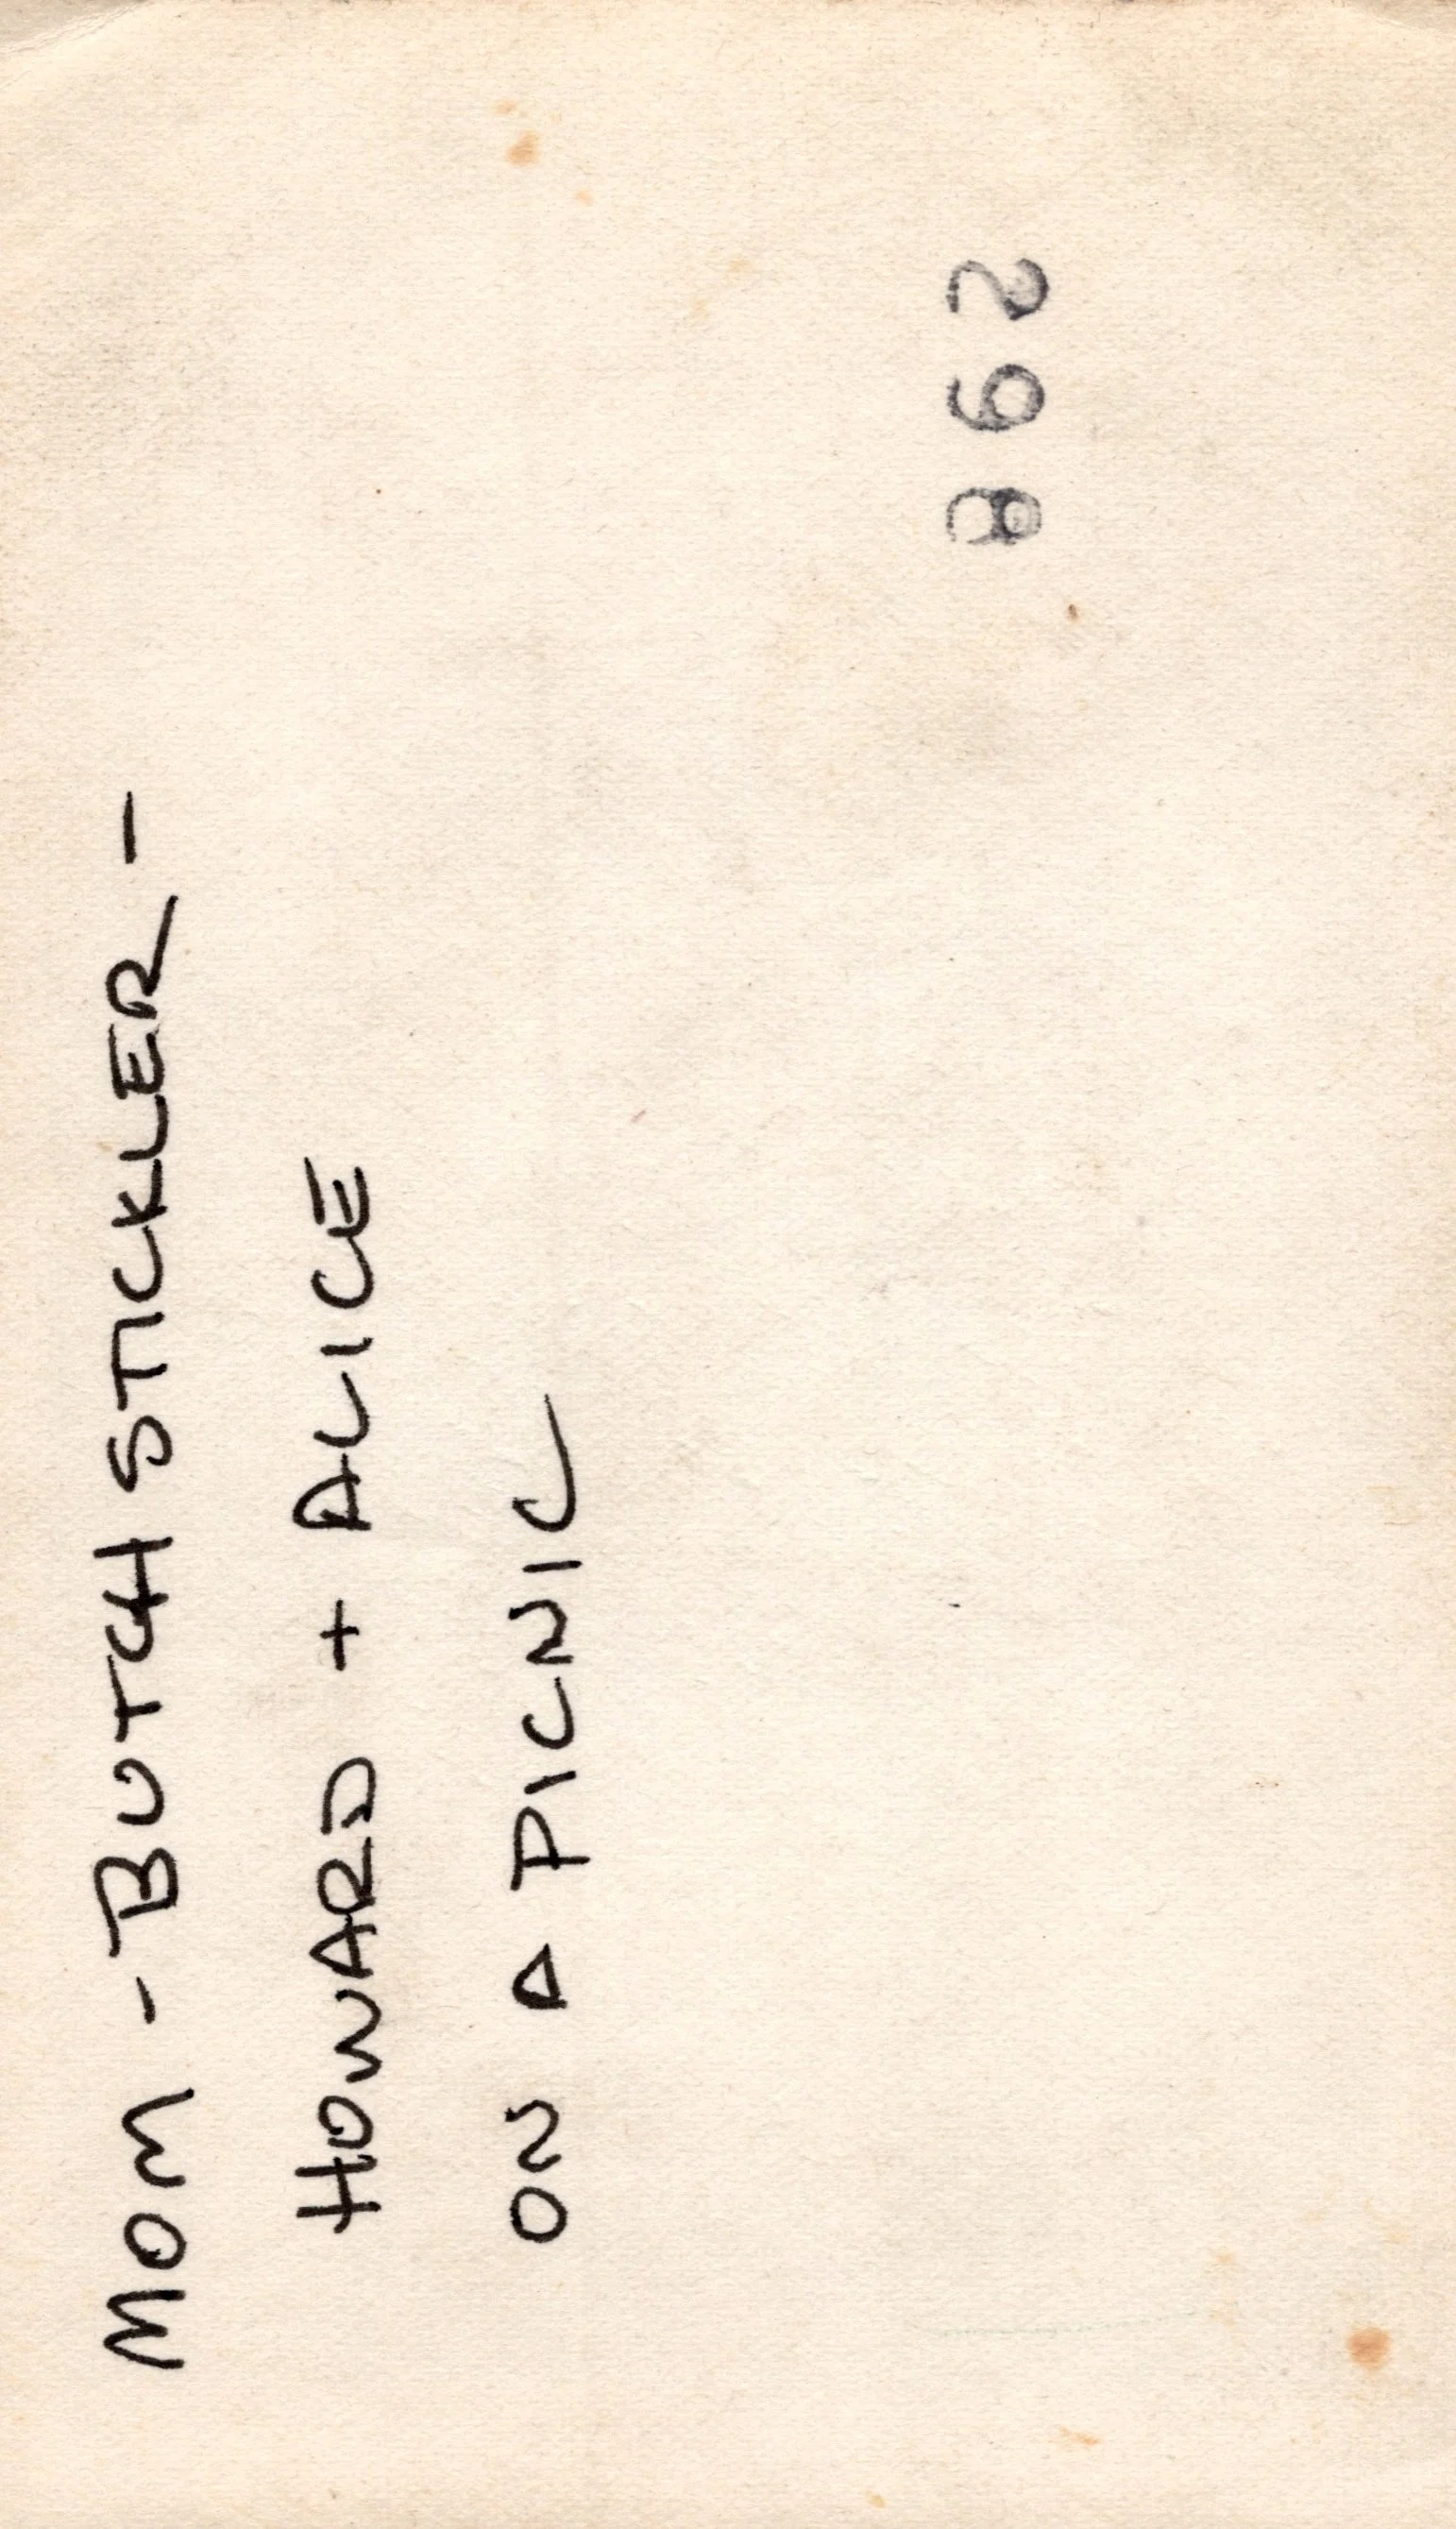 MOM - BUTCH STICKLER -
HOWARD + ALICE
ON A PICNIC
298